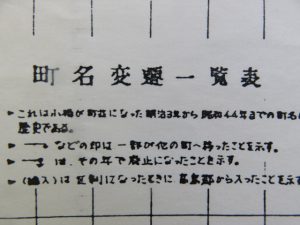 町名変遷一覧表
▶これは小樽が町並になった明治3年から昭和44年までの町名の
歴史である。
▶ → などの印は一部が他の町へ移ったことを示す。
▶ は、その年で廃止になったことを示す。
▶(編入)は区制になったときに 郡から入ったことを示す